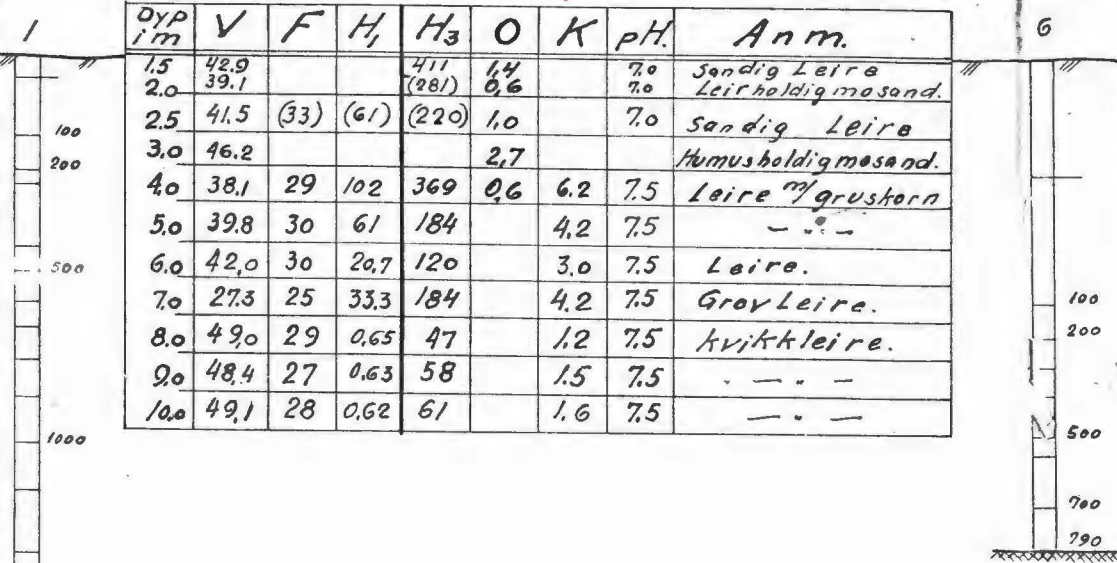 1
Dyp i m V F H₁ H₃ O K pH. Anm.
1.5 42.9 411 1,4 7.0 Sandig Leire
2.0 39.1 (281) 0,6 7.0 Leirholdig mosand.
2.5 41.5 (33) (61) (220) 1,0 7.0 Sandig Leire
3,0 46.2 2,7 Humusholdig mosand.
4,0 38,1 29 102 369 0,6 6.2 7.5 Leire m/gruskorn
5.0 39.8 30 61 184 4.2 7.5 — " —
6.0 42,0 30 20,7 120 3.0 7.5 Leire.
7.0 27.3 25 33,3 184 4.2 7.5 Grov Leire.
8.0 49,0 29 0,65 47 1.2 7.5 kvikkleire.
9.0 48,4 27 0.63 58 1.5 7.5 . — " —
10.0 49,1 28 0,62 61 1.6 7.5 — " —
100
200
500
1000
6
100
200
500
700
790